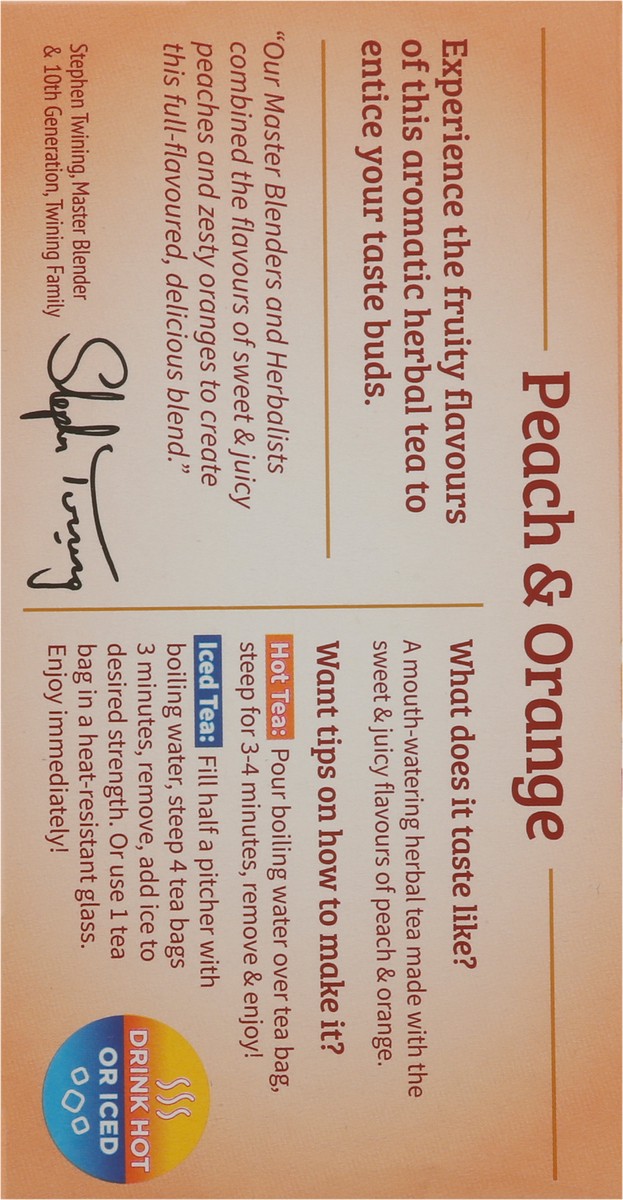 Peach & Orange
Experience the fruity flavours
of this aromatic herbal tea to
entice your taste buds.
“Our Master Blenders and Herbalists
combined the flavours of sweet & juicy
peaches and zesty oranges to create
this full-flavoured, delicious blend.”
Stephen Twining, Master Blender
& 10th Generation, Twining Family
Stephen Twining
What does it taste like?
A mouth-watering herbal tea made with the
sweet & juicy flavours of peach & orange.
Want tips on how to make it?
Hot Tea: Pour boiling water over tea bag,
steep for 3-4 minutes, remove & enjoy!
Iced Tea: Fill half a pitcher with
boiling water, steep 4 tea bags
3 minutes, remove, add ice to
desired strength. Or use 1 tea
bag in a heat-resistant glass.
Enjoy immediately!
DRINK HOT
OR ICED